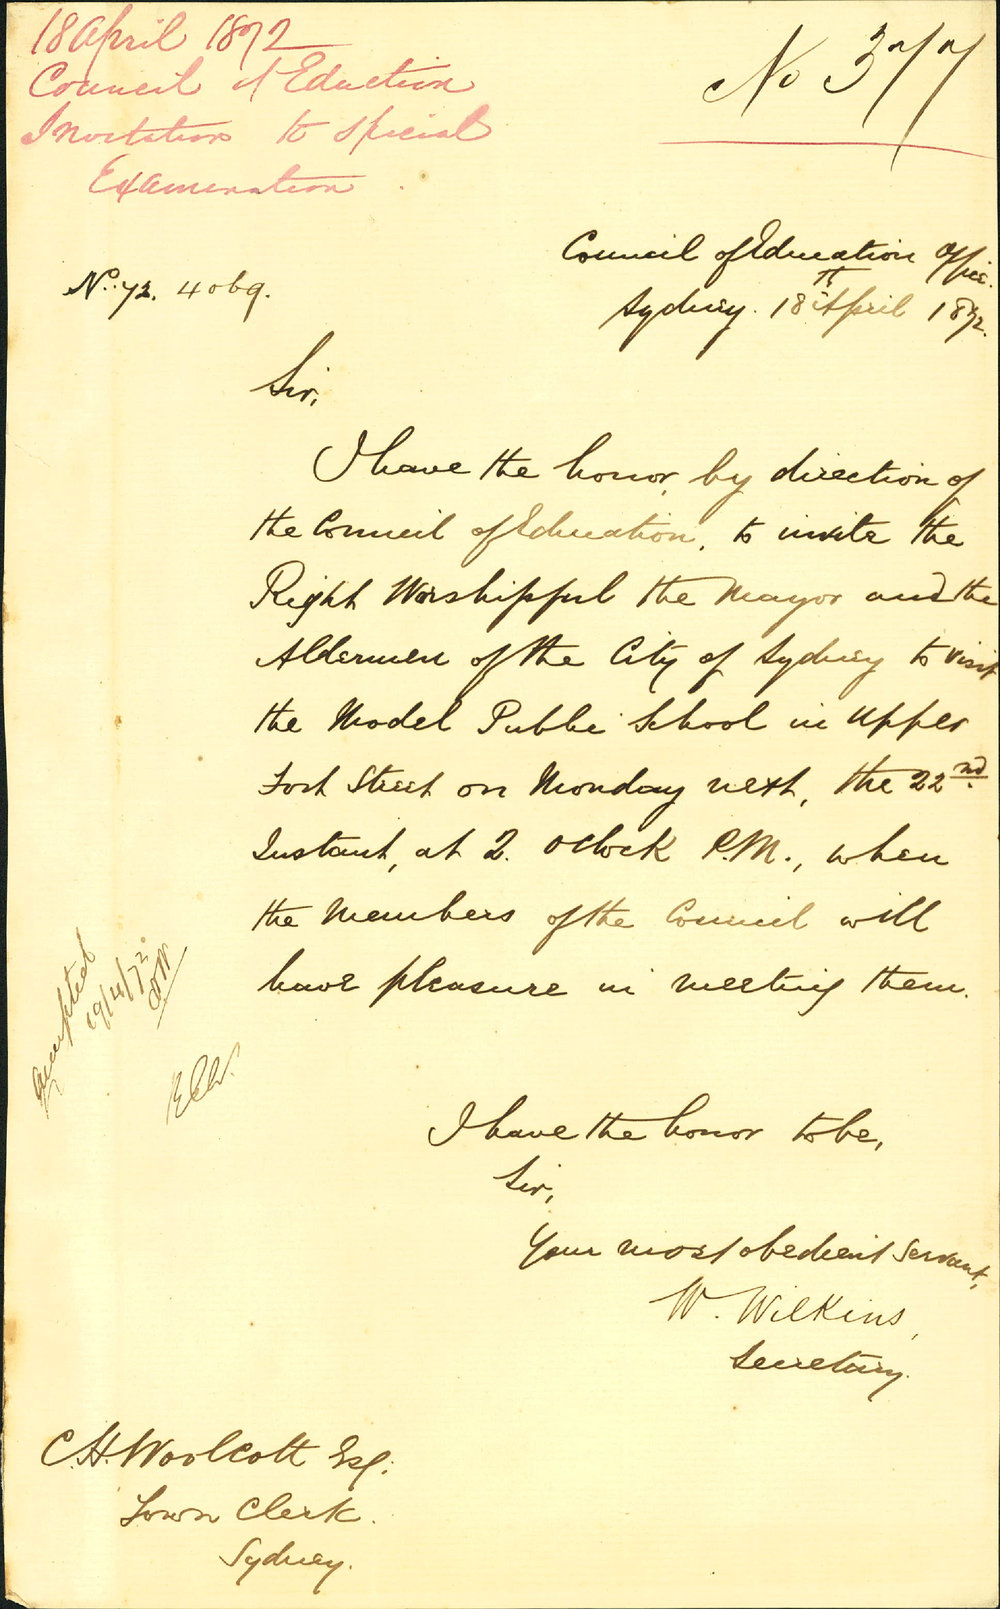 18 April 1872
Council of Eduction
Invitation to Special
Examination
No 377
Council of Education Office.
Sydney. 18th April 1872.
No: 72. 4069.
Sir,
I have the honor, by direction of
the Council of Education, to invite the
Right Worshipful the Mayor and the
Aldermen of the City of Sydney to visit
the Model Public School in Upper
Fort Street on Monday next, the 22nd
Instant, at 2. O'Clock P.M., when
the Members of the Council will
have pleasure in meeting them.
I have the honor to be,
Sir,
Your most obedient Servant,
W. Wilkins,
Secretary.
19/4/72.
C.H. Woolcott Esq.
Town Clerk.
Sydney.